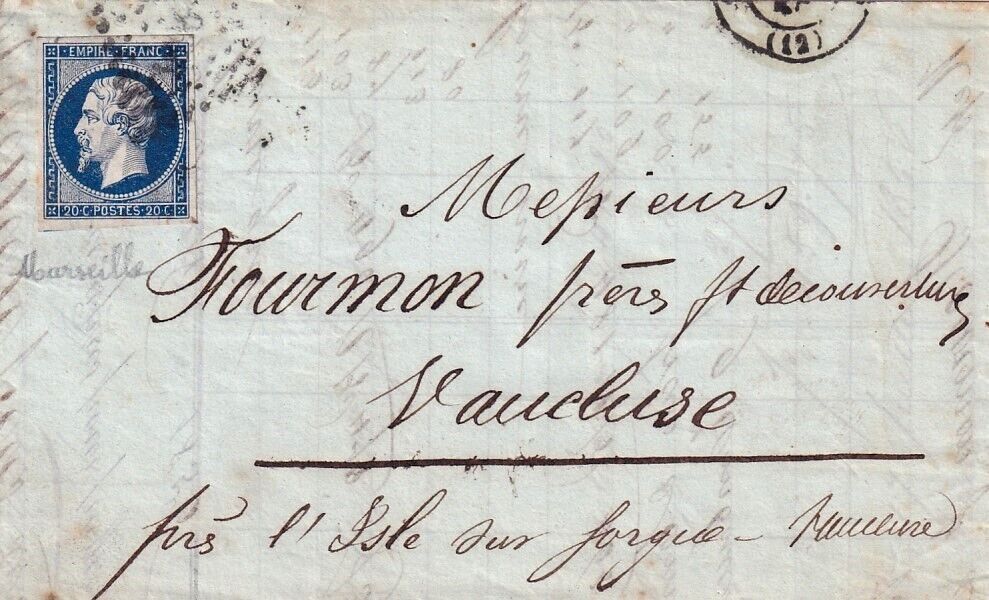 EMPIRE FRANC
20·C·POSTES·20·C
(12)
Marseille
Messieurs
Fourmon frères ft de couvertures
Vaucluse
près l'Isle sur Sorgue - Vaucluse